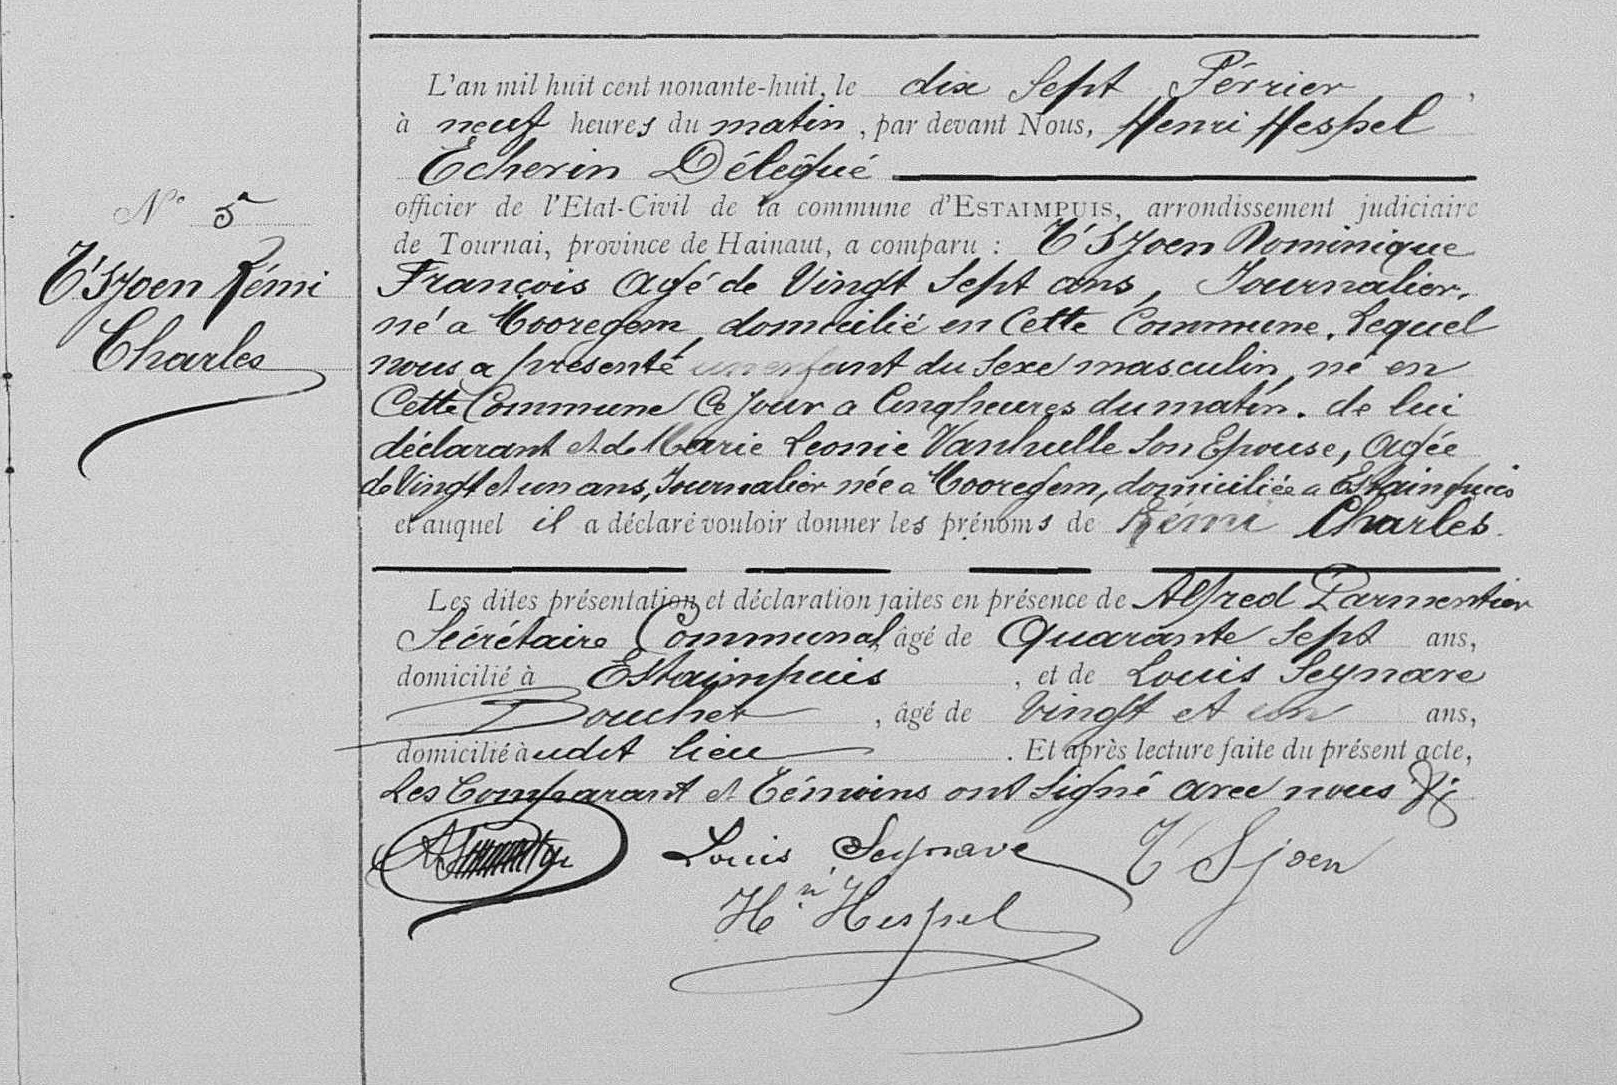 L'an mil huit cent nonante-huit, le dix Sept Février,
à neuf heures du matin, par devant Nous, Henri Hespel
Echevin Délégué
officier de l'Etat-Civil de la commune d'ESTAIMPUIS, arrondissement judiciaire
de Tournai, province de Hainaut, a comparu : T'Sjoen Dominique
François agé de Vingt Sept ans, Journalier,
né a Mooregem, domicilié en cette Commune. Lequel
nous a présenté un enfant du Sexe masculin, né en
Cette Commune Ce jour a Cinq heures du matin. de lui
déclarant et de Marie Leonie Vanhulle Son Epouse, agée
de Vingt et un ans, Journalier née a Mooregem, domiciliée a Estaimpuis
et auquel il a déclaré vouloir donner les prénoms de Rémi Charles.
N° 5
T'Sjoen Rémi
Charles
Les dites présentation et déclaration faites en présence de Alfred Parmentier
Sécrétaire Communal, âgé de Quarante Sept ans,
domicilié à Estaimpuis, et de Louis Seynave
Boucher, âgé de Vingt et un ans,
domicilié à udit lieu. Et après lecture faite du présent acte,
Les Comparant et Témoins ont Signé avec nous
Louis Seynave T'Sjoen
Hri Hespel